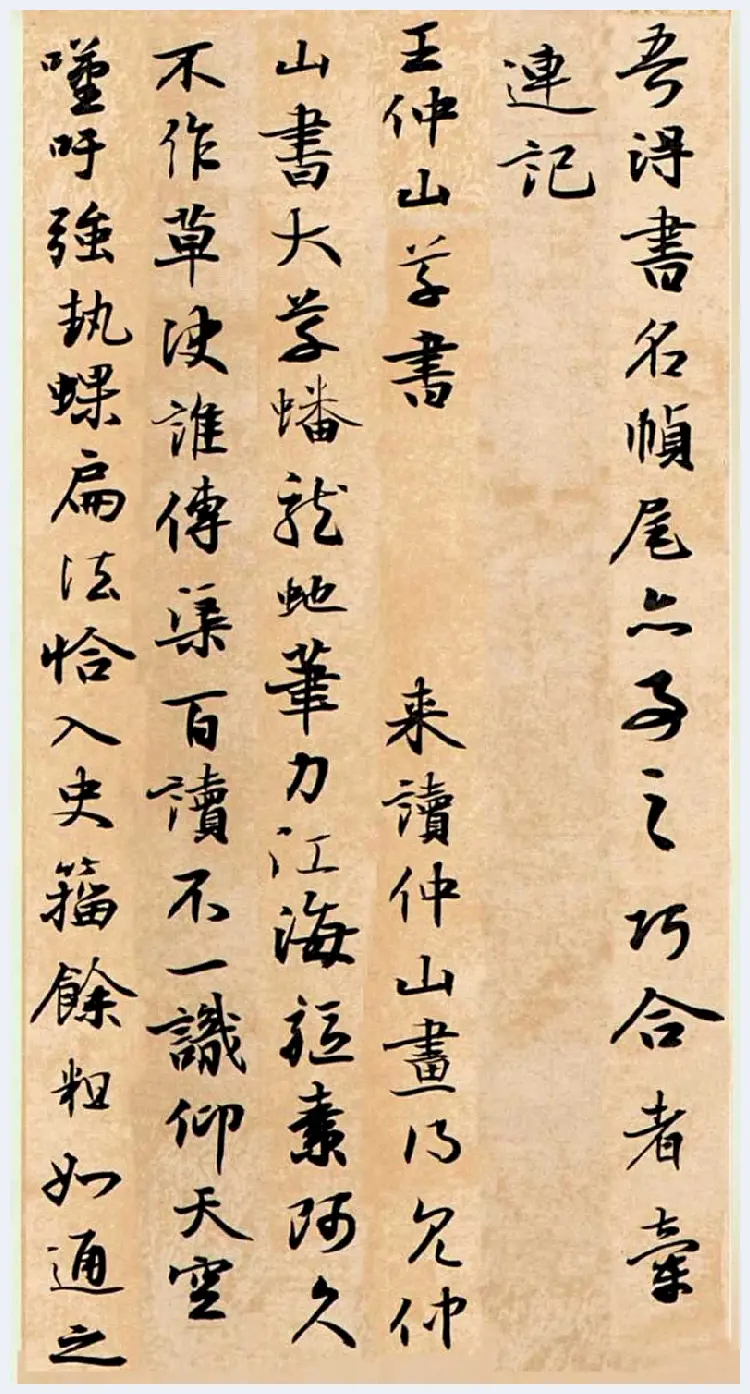 吾得書名幀尾亦多之巧合者牽
連記
王仲山草書 来讀仲山畫得見仲
山書大草蟠龍蛇筆力江海驅素阿久
不作草使誰傳渠百讀不一識仰天空
嚄吁強執蜾扁法恰入史籀餘粗如通之